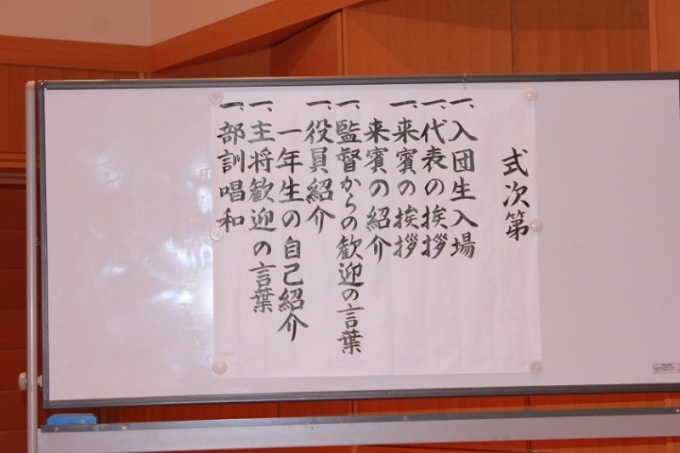 式次第
一、入団生入場
一、代表の挨拶
一、来賓の挨拶
来賓の紹介
一、監督からの歓迎の言葉
一、役員紹介
一年生の自己紹介
一、主将歓迎の言葉
一、部訓唱和